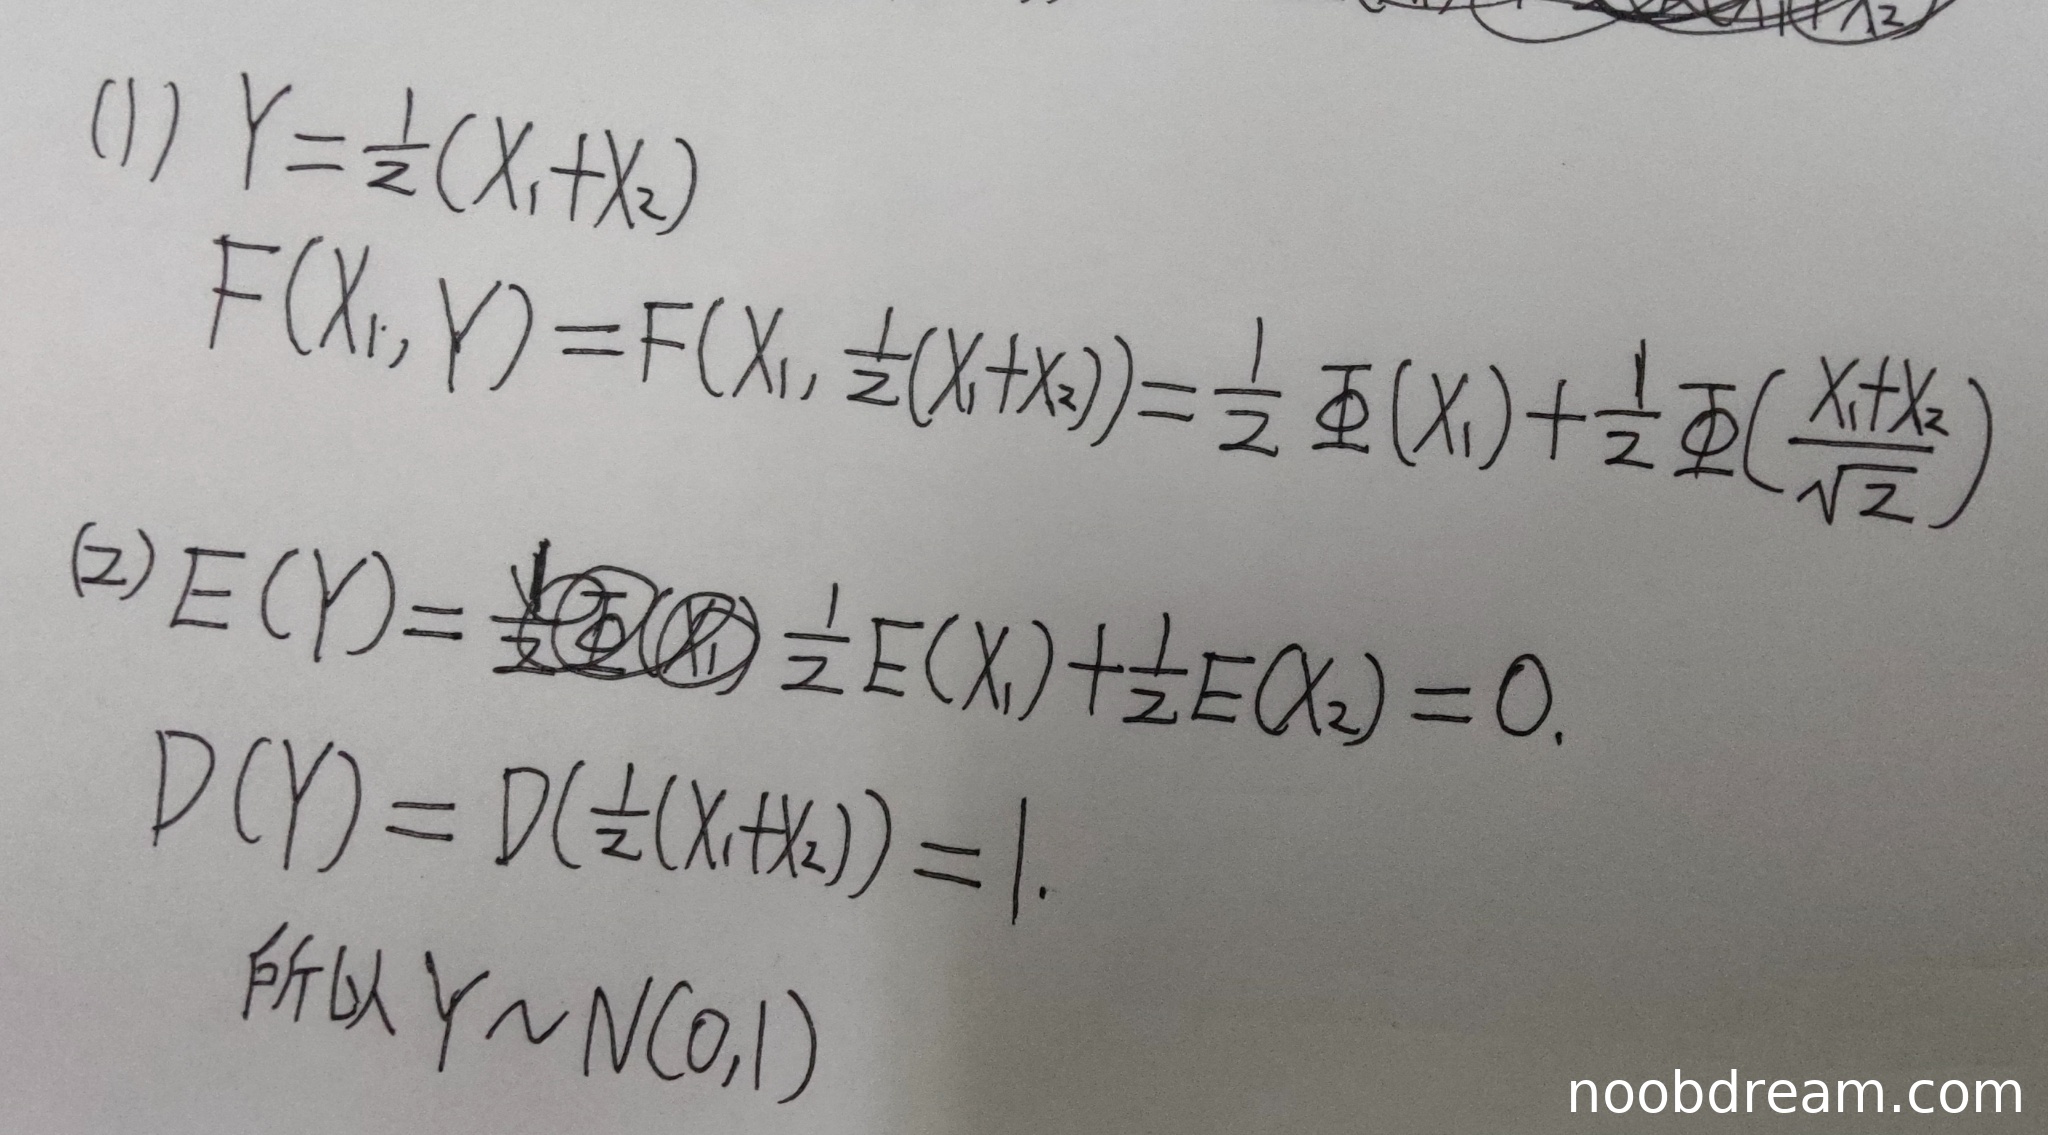 (1) Y=½(X₁+X₂)
F(X₁, Y)=F(X₁, ½(X₁+X₂))=½Φ(X₁)+½Φ((X₁+X₂)/√2)
(2) E(Y)=½E(X₁)+½E(X₂)=0.
D(Y)=D(½(X₁+X₂))=1.
所以 Y~N(0,1)
noobdream.com